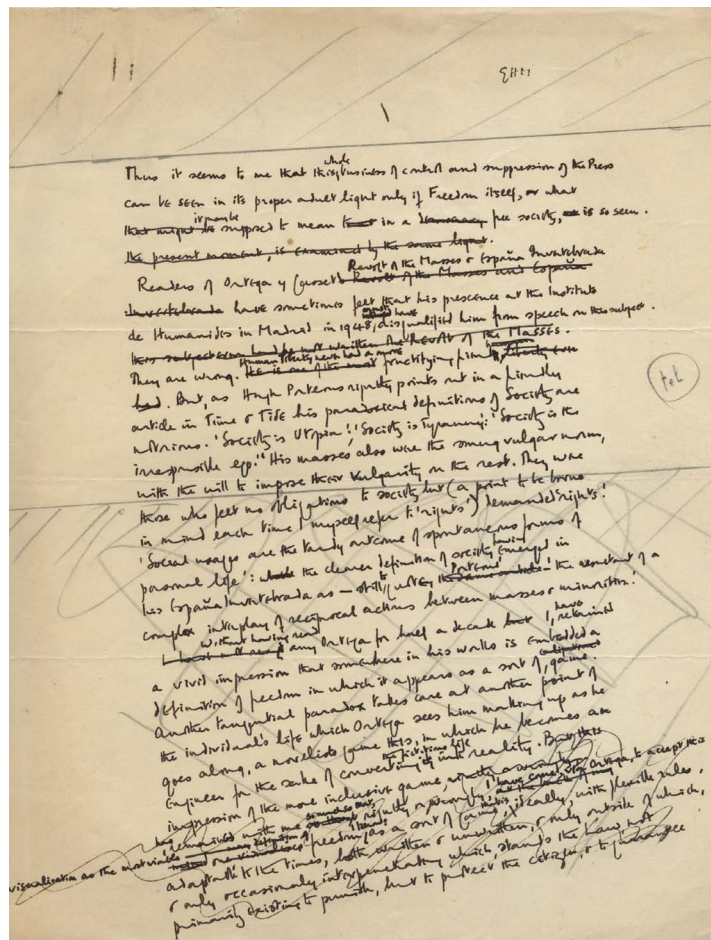 1
Thus it seems to me that this whole business of control and suppression of the Press
can be seen in its proper adult light only if Freedom itself, or what
that might be it may be supposed to mean in a free society, is so seen.
the present moment, is examined by the same light.
Readers of Ortega y Gasset's Revolt of the Masses & España Invertebrada
Revolt of the Masses and España
Invertebrada have sometimes felt that his presence at the Instituto
de Humanides in Madrid in 1948, must have disqualified him from speech on this subject.
had he not written the Revolt of the Masses.
They are wrong. Human liberty never had a more fructifying friend
had. But, as Hugh Porteus rightly points out in a friendly
article in Time & Tide his paradoxical definitions of Society are
notorious. 'Society is Utopia'! 'Society is Tyranny'! 'Society is the
irresponsible ego.' His masses, also were the smug vulgar norm,
with the will to impose their vulgarity on the rest. They were
those who felt no obligations to society but (a point to be borne
in mind each time I myself refer to 'rights') demanded 'rights'.
'Social usages are the tardy outcome of spontaneous forms of
personal life': the clearer definition of society having emerged in
his España Invertebrada as — still to quote Porteus — 'the resultant of a
complex interplay of reciprocal actions between masses & minorities.'
without having read any Ortega for half a decade I have retained
a vivid impression that somewhere in his works is embedded a
definition of freedom in which it appears as a sort of game.
Another tangential paradox takes care at another point of
the individual's life which Ortega sees him making up as he
goes along, a novelist's game this, in which he becomes an
Engineer for the sake of converting the fictitious life into reality. But this
impression of the more inclusive game, rightly or wrongly
has remained with me I have come, via Ortega, to accept this
visualisation as the most viable freedom as a sort of game, ideally, with flexible rules,
adaptable to the times, both written & unwritten, & only outside of which,
& only occasionally interpenetrating which, stands the Law, not
primarily existing to punish, but to protect the citizen, & to guarantee